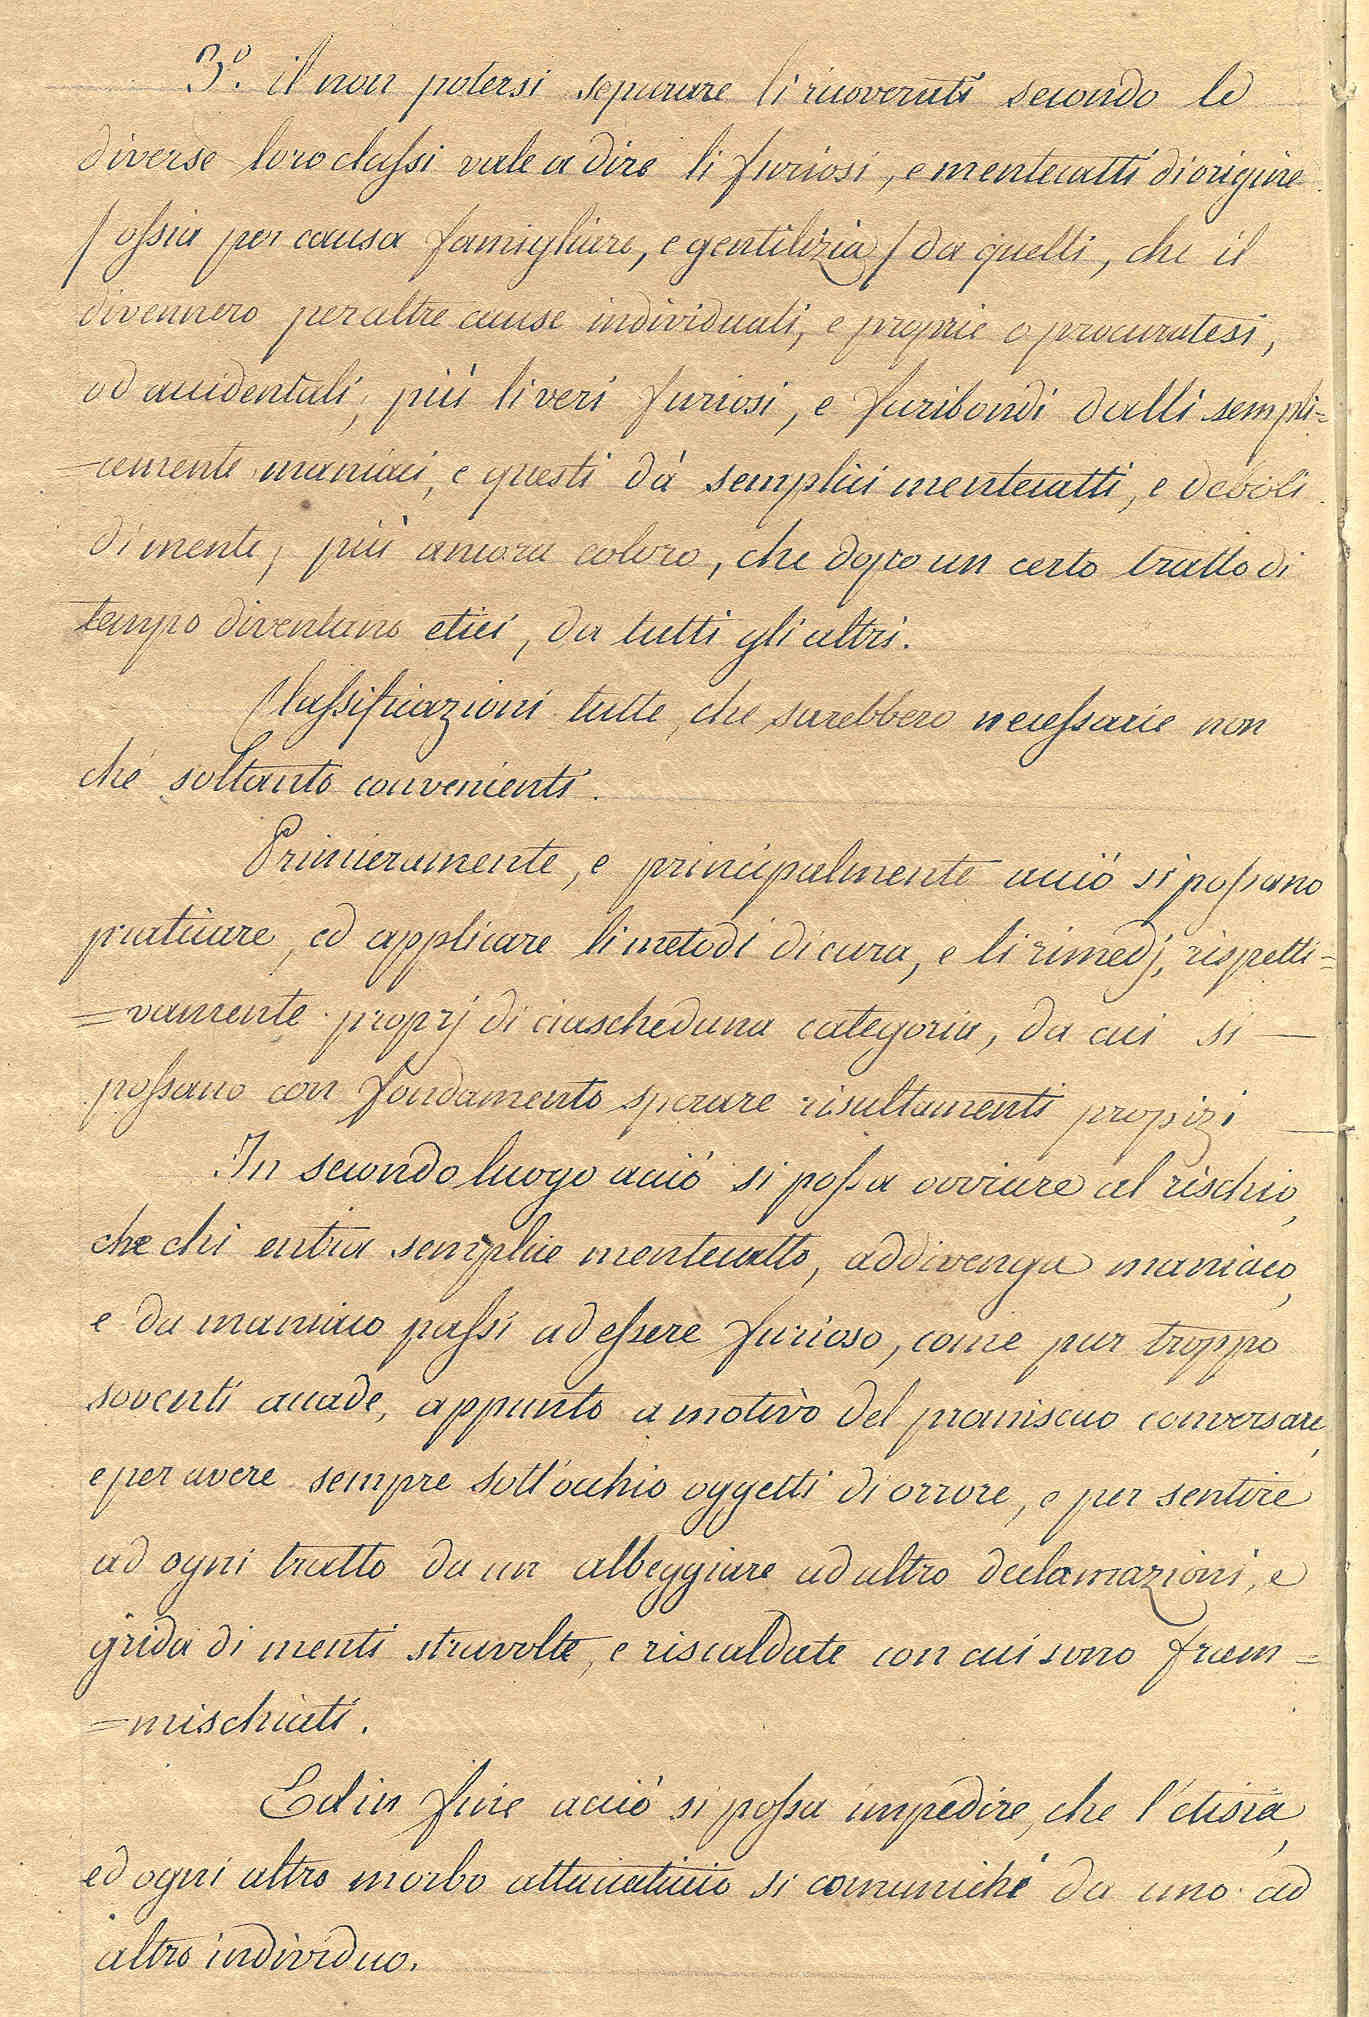 3.º il non potersi separare li ricoverati secondo le
diverse loro classi vale a dire li furiosi, e mentecatti di origine
/ ossia per causa famigliare, e gentilizia / da quelli, che il
divennero per altre cause individuali, e proprie o procuratesi,
od accidentali; più li veri furiosi, e furibondi dalli sempli=
=cemente maniaci, e questi da' semplici mentecatti, e deboli
di mente; più ancora coloro, che dopo un certo tratto di
tempo diventano etici, da tutti gli altri.
Classificazioni tutte, che sarebbero necessarie non
che soltanto convenienti.
Primieramente, e principalmente acciò si possano
praticare, ed applicare li metodi di cura, e li rimedj, rispetti=
=vamente proprj di ciascheduna categoria, da cui si
possano con fondamento sperare risultamenti propizi
In secondo luogo acciò si possa ovviare al rischio,
che chi entra semplice mentecatto, addivenga maniaco,
e da maniaco passi ad essere furioso, come pur troppo
soventi accade, appunto a motivo del promiscuo conversare,
e per avere sempre sott'occhio oggetti di orrore, e per sentire
ad ogni tratto da un albeggiare ad altro declamazioni, e
grida di menti stravolte, e riscaldate con cui sono fram=
=mischiati.
Ed in fine acciò si possa impedire, che l'etisia,
ed ogni altro morbo attaccaticcio si comunichi da uno ad
altro individuo.